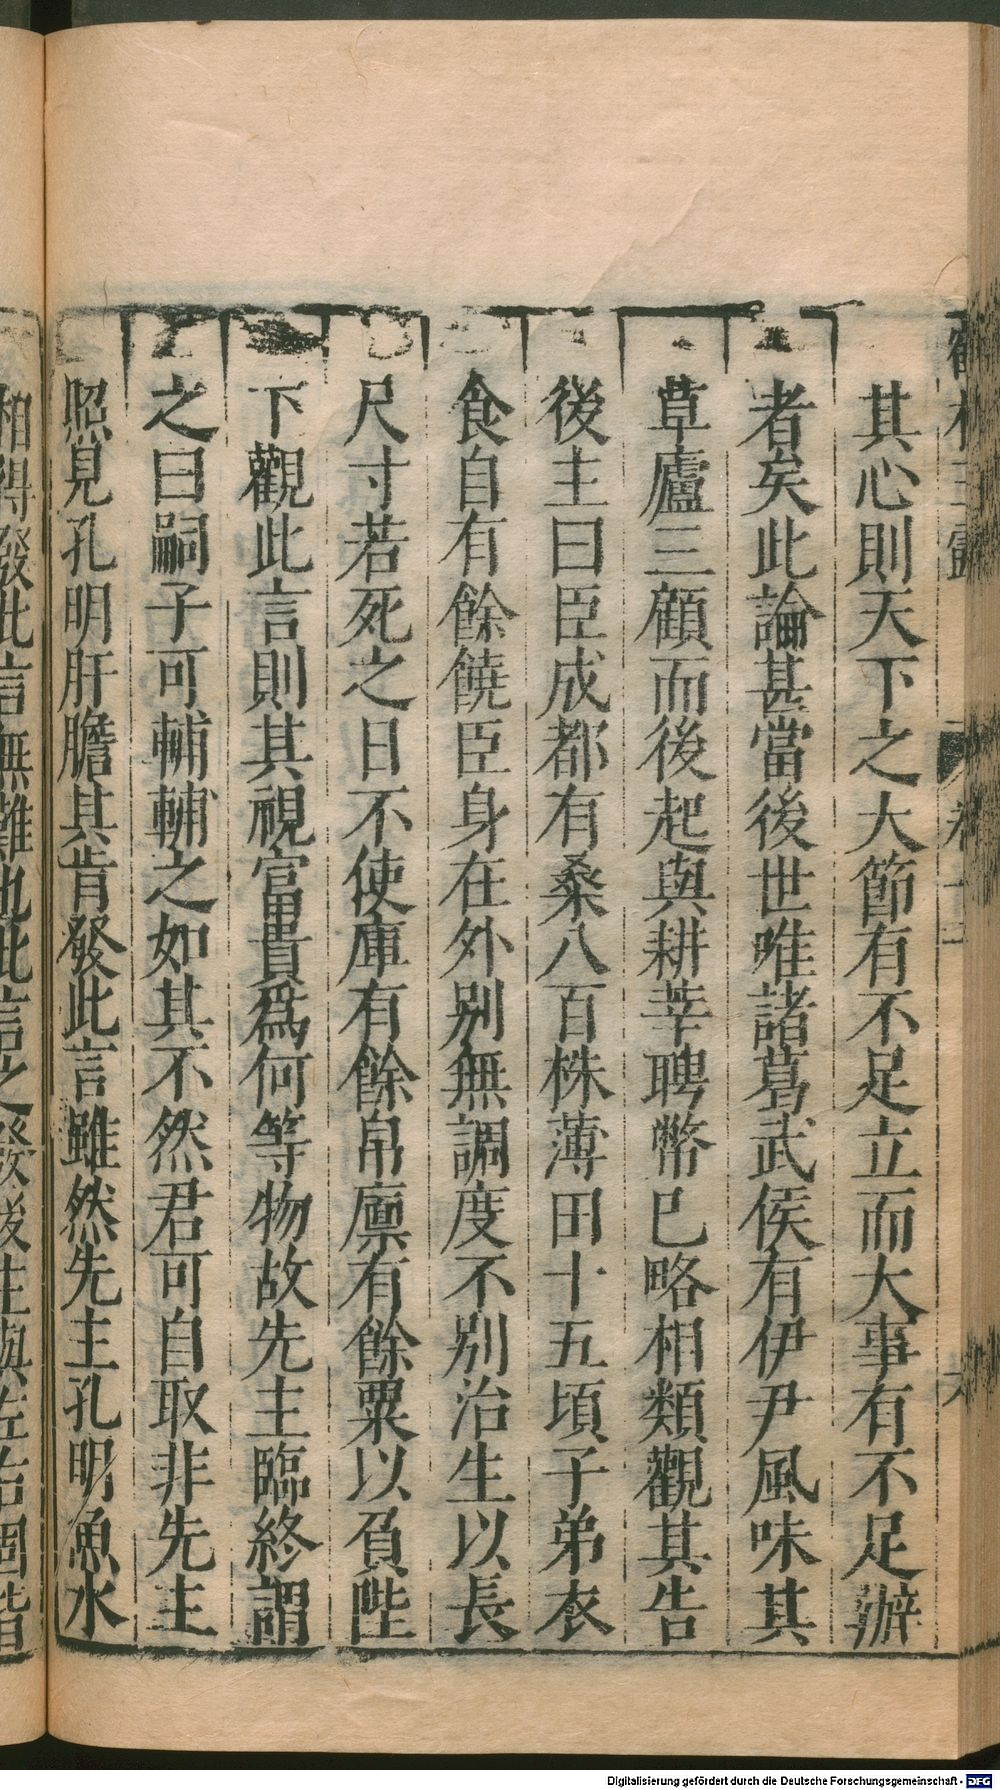 其心則天下之大節有不足立而大事有不足辦
者矣此論甚當後世唯諸葛武侯有伊尹風味其
草廬三顧而後起與耕莘聘幣已略相類觀其告
後主曰臣成都有桑八百株薄田十五頃子弟衣
食自有餘饒臣身在外別無調度不別治生以長
尺寸若死之日不使庫有餘帛廩有餘粟以負陛
下觀此言則其視富貴爲何等物故先主臨終謂
之曰嗣子可輔輔之如其不然君可自取非先主
照見孔明肝膽其肯發此言雖然先主孔明魚水
相得發此言無難也此言之發後主與左右固皆
Digitalisierung gefördert durch die Deutsche Forschungsgemeinschaft - DFG